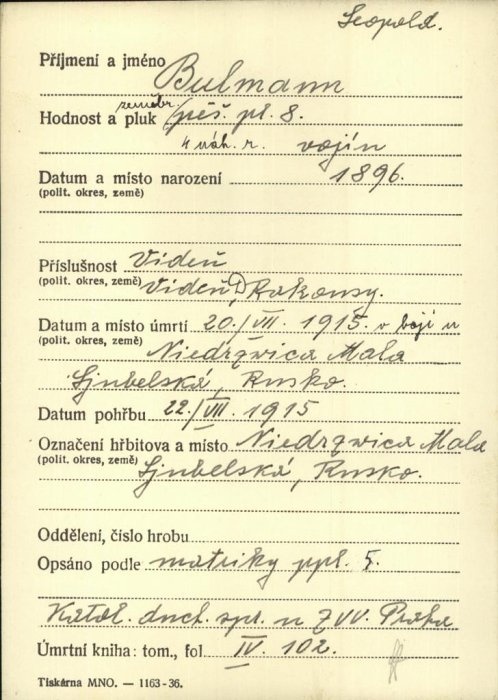 Leopold.
Příjmení a jméno Bulmann
zeměbr.
Hodnost a pluk pěš. pl. 8.
4 náh. r. vojín
Datum a místo narození 1896.
(polit. okres, země)
Příslušnost Vídeň
(polit. okres, země) Vídeň, Rakousy.
Datum a místo úmrtí 20./VII. 1915. v boji u
(polit. okres, země) Niedrzwica Mala
Ljubelská, Rusko.
Datum pohřbu 22./VII. 1915
Označení hřbitova a místo Niedrzwica Mala
(polit. okres, země) Ljubelská, Rusko.
Oddělení, číslo hrobu
Opsáno podle matriky ppl. 5.
Katol. duch. spr. u ZVV. Praha
Úmrtní kniha: tom., fol. IV. 102.
Tiskárna MNO. — 1163-36.